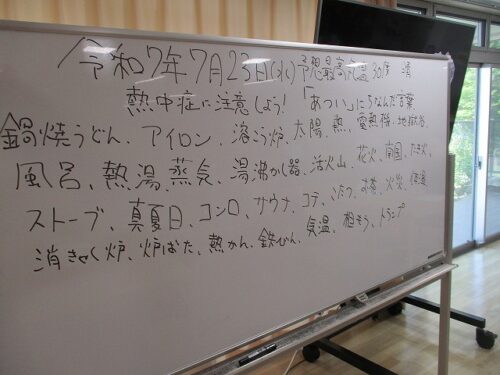 令和7年7月23日(水)予想最高気温30度 晴
熱中症に注意しよう!「あつい」にちなんだ言葉
鍋焼うどん、アイロン、溶こう炉、太陽、熱、電熱機、地獄谷、
風呂、熱湯、蒸気、湯沸かし器、活火山、花火、南国、たき火、
ストーブ、真夏日、コンロ、サウナ、コテ、こたつ、お茶、火災、
消きゃく炉、炉ばた、熱かん、鉄びん、気温、想そう、トランプ